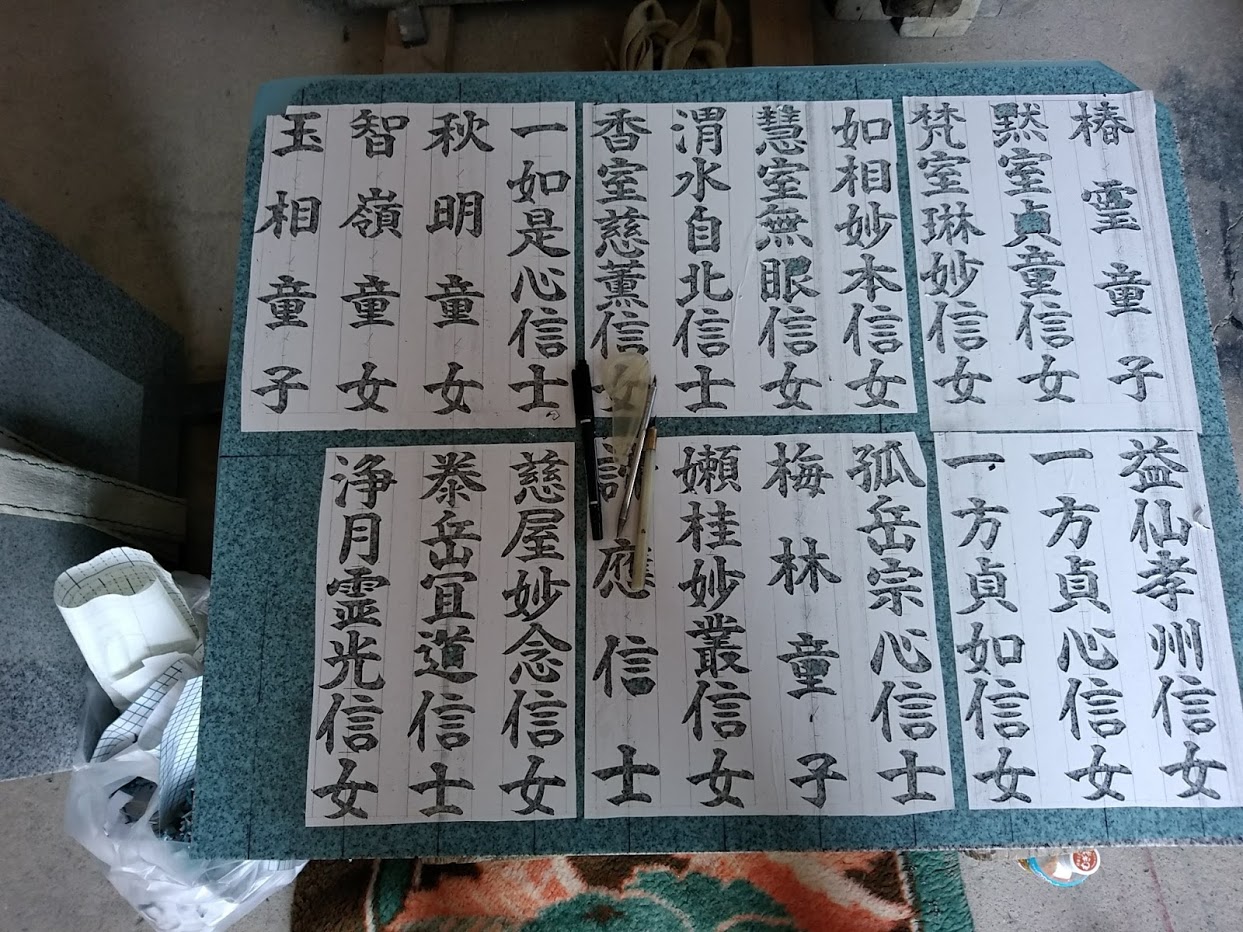 椿霊童子
黙室貞童信女
梵室琳妙信女
如相妙本信女
慧室無眼信女
渭水自北信士
香室慈薫信女
一如是心信士
秋明童女
智嶺童女
玉相童子
益仙孝州信女
一方貞心信女
一方貞如信女
孤岳宗心信士
梅林童子
嬾桂妙叢信女
應信士
慈屋妙念信女
泰岳冝道信士
浄月霊光信女